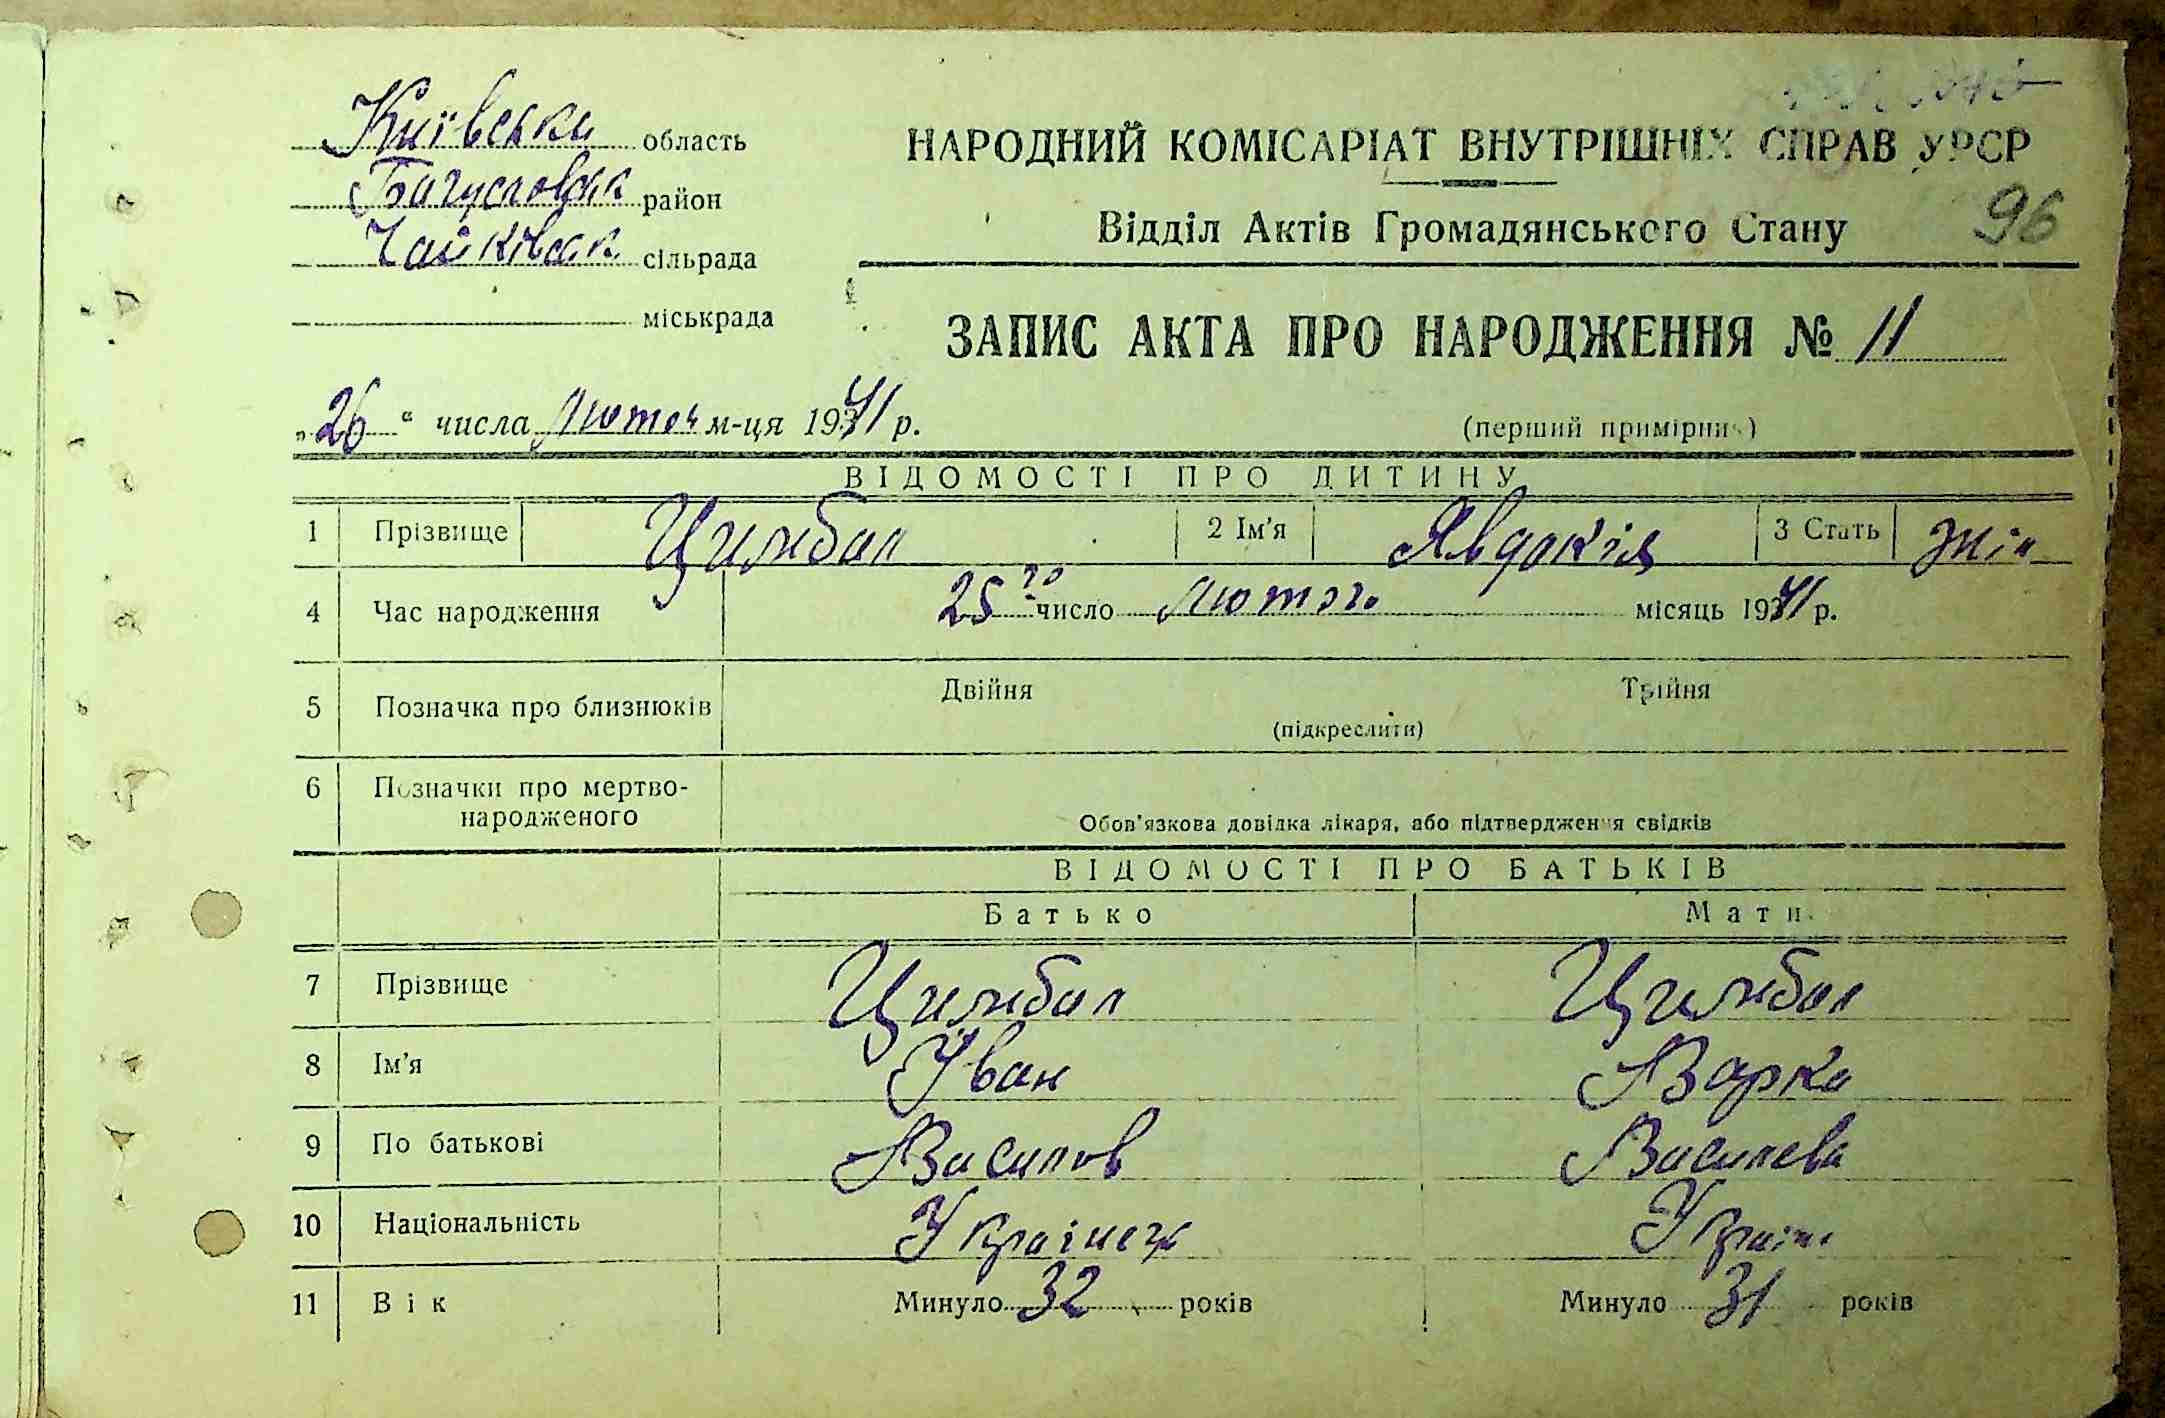 Київська область
Багуславськ район
Чайківськ сільрада
міськрада
НАРОДНИЙ КОМІСАРІАТ ВНУТРІШНІХ СПРАВ УРСР
Відділ Актів Громадянського Стану
96
ЗАПИС АКТА ПРО НАРОДЖЕННЯ № 11
„26“ числа лютог м-ця 1941 р.
(перший примірник)
ВІДОМОСТІ ПРО ДИТИНУ
1 Прізвище Цимбал 2 Ім'я Явдокія 3 Стать жін
4 Час народження 25го число лютого місяць 1941 р.
5 Позначка про близнюків Двійня Трійня
(підкреслити)
6 Позначки про мертво-
народженого
Обов'язкова довідка лікаря, або підтвердження свідків
ВІДОМОСТІ ПРО БАТЬКІВ
Батько Мати
7 Прізвище Цимбал Цимбал
8 Ім'я Іван Варка
9 По батькові Василов Василева
10 Національність Українец Україн
11 Вік Минуло 32 років Минуло 31 років